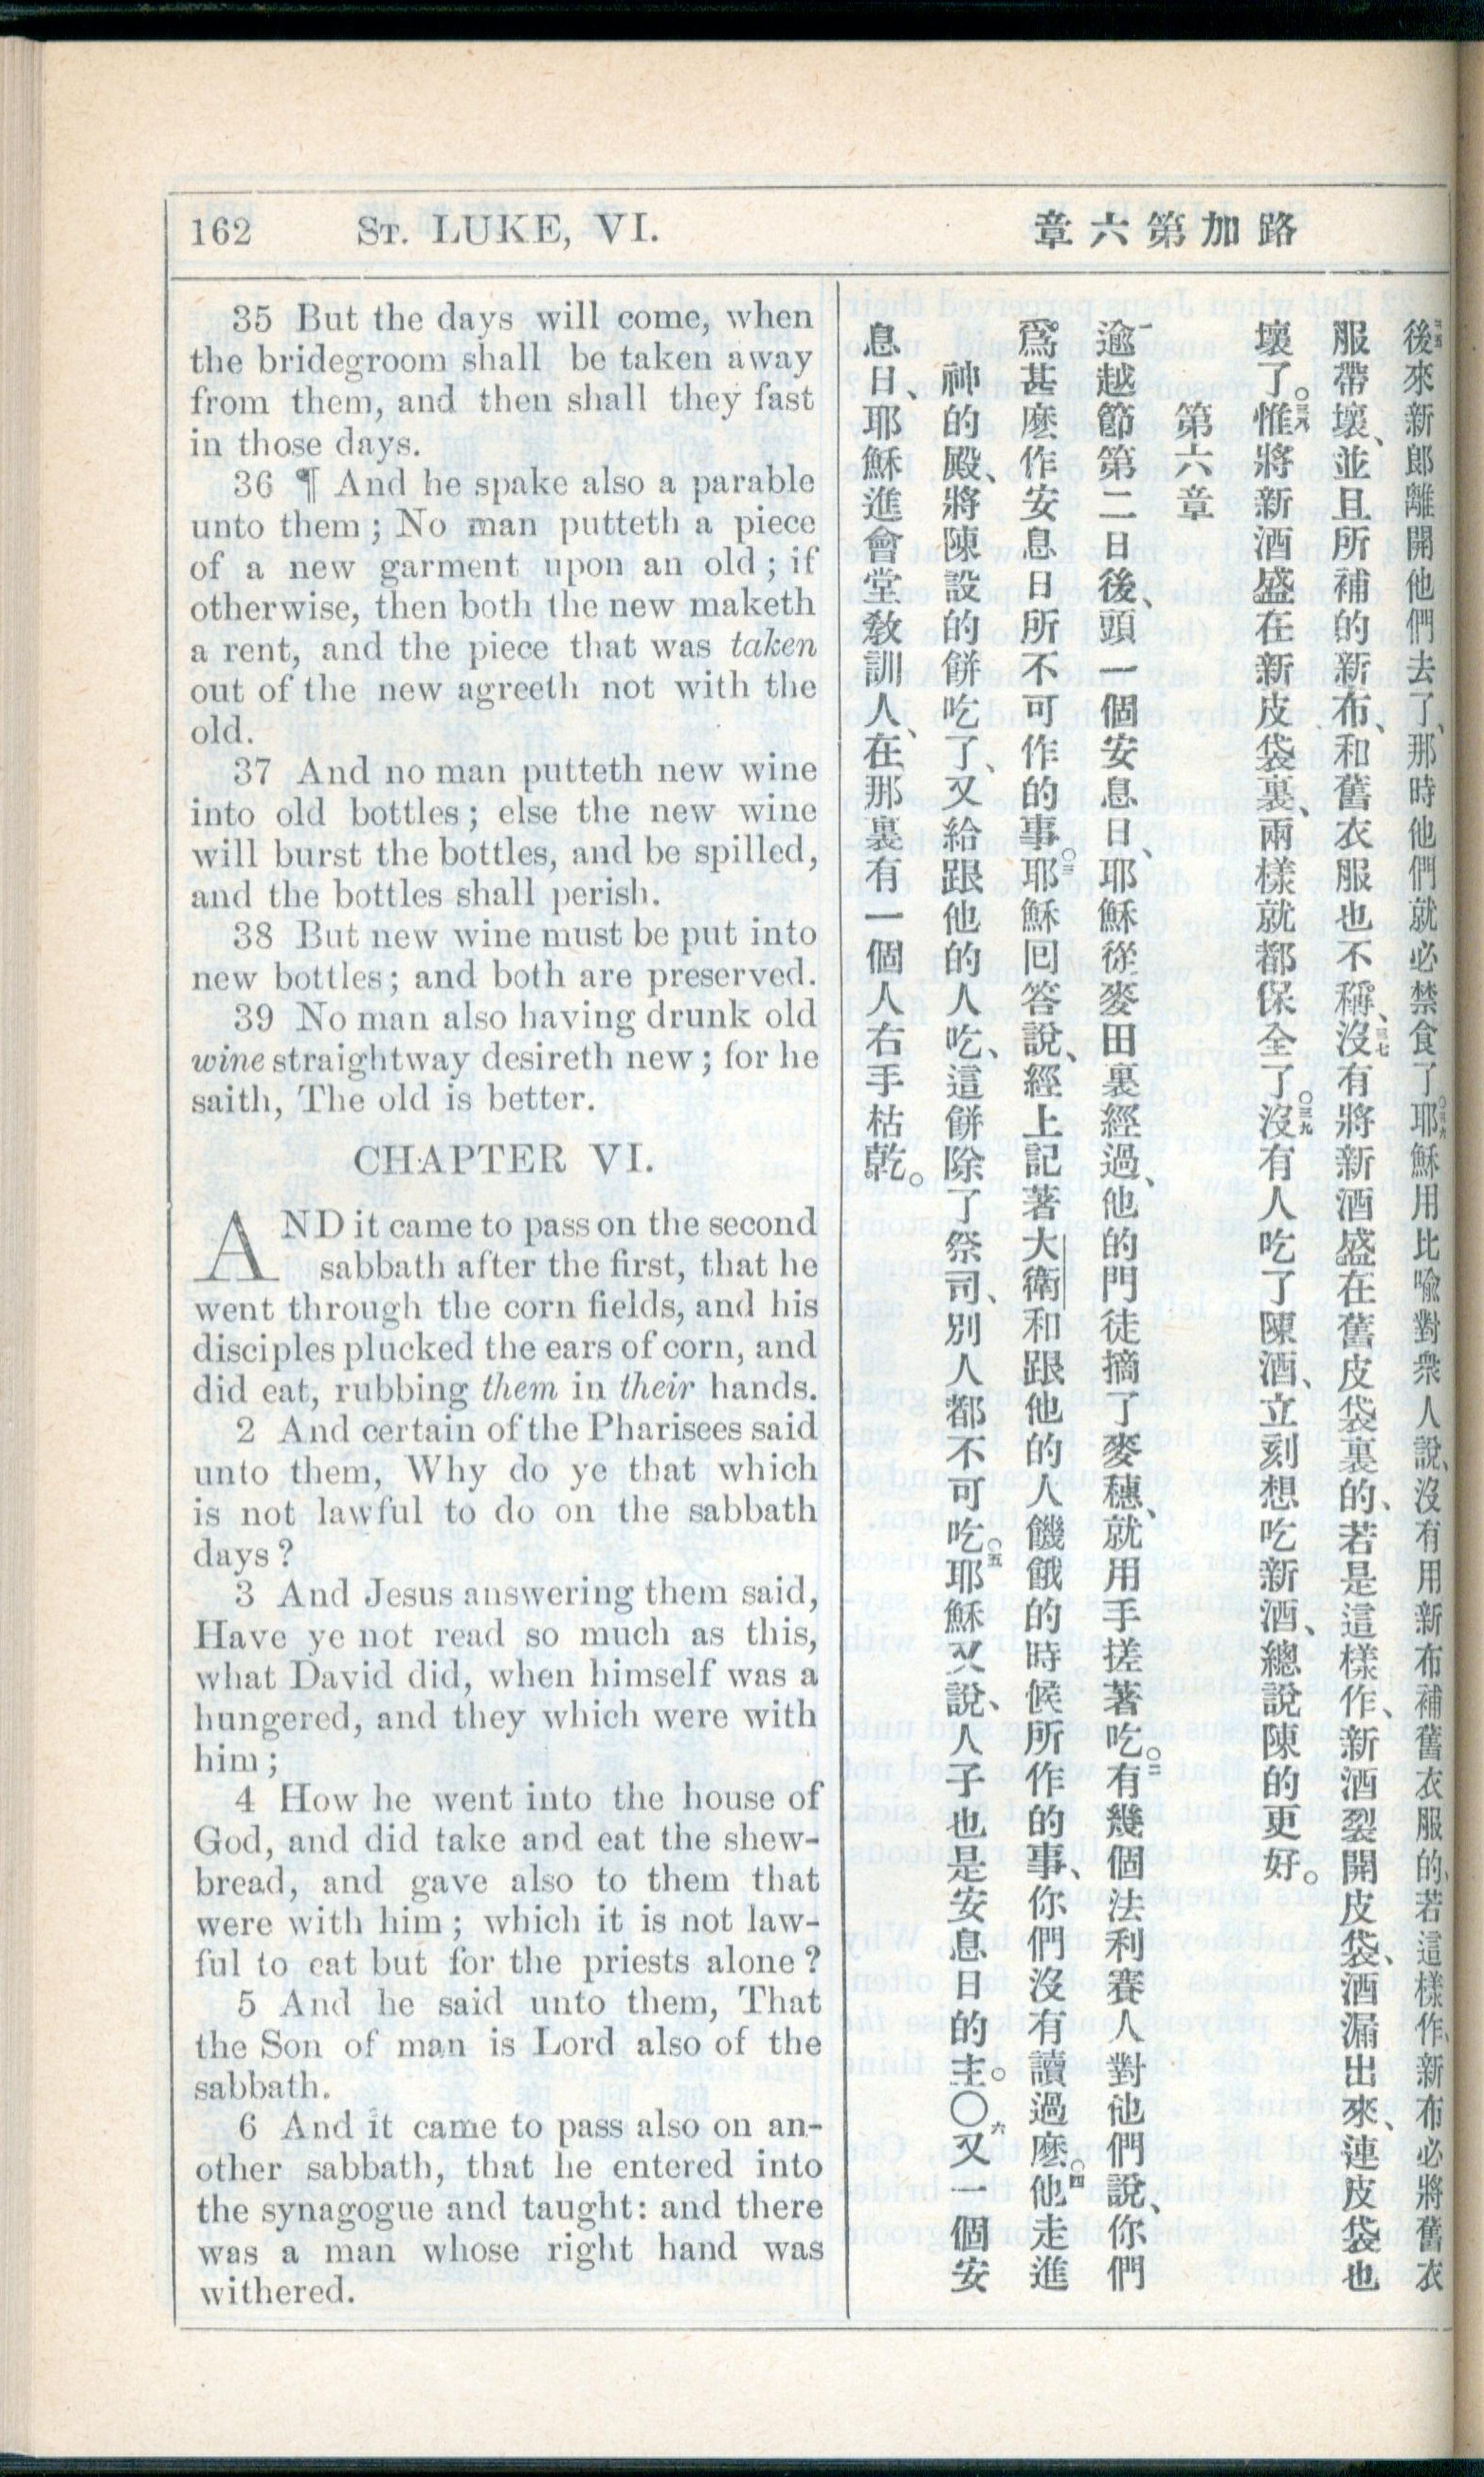 162 ST. LUKE, VI.
路加第六章
35 But the days will come, when
the bridegroom shall be taken away
from them, and then shall they fast
in those days.
36 ¶ And he spake also a parable
unto them ; No man putteth a piece
of a new garment upon an old ; if
otherwise, then both the new maketh
a rent, and the piece that was taken
out of the new agreeth not with the
old.
37 And no man putteth new wine
into old bottles ; else the new wine
will burst the bottles, and be spilled,
and the bottles shall perish.
38 But new wine must be put into
new bottles ; and both are preserved.
39 No man also having drunk old
wine straightway desireth new ; for he
saith, The old is better.
CHAPTER VI.
AND it came to pass on the second
sabbath after the first, that he
went through the corn fields, and his
disciples plucked the ears of corn, and
did eat, rubbing them in their hands.
2 And certain of the Pharisees said
unto them, Why do ye that which
is not lawful to do on the sabbath
days ?
3 And Jesus answering them said,
Have ye not read so much as this,
what David did, when himself was a
hungered, and they which were with
him ;
4 How he went into the house of
God, and did take and eat the shew-
bread, and gave also to them that
were with him ; which it is not law-
ful to eat but for the priests alone ?
5 And he said unto them, That
the Son of man is Lord also of the
sabbath.
6 And it came to pass also on an-
other sabbath, that he entered into
the synagogue and taught: and there
was a man whose right hand was
withered.
三五後來新郎離開他們去了、那時他們就必禁食了。三六耶穌用比喻對衆人說、沒有用新布補舊衣服的、若這樣作、新布必將舊衣
服帶壞、並且所補的新布、和舊衣服也不稱、三七沒有將新酒盛在舊皮袋裏的、若是這樣作、新酒裂開皮袋、酒漏出來、連皮袋也
壞了。三八惟將新酒盛在新皮袋裏、兩樣就都保全了。三九沒有人吃了陳酒、立刻想吃新酒、總說陳的更好。
第六章
一逾越節第二日後、頭一個安息日、耶穌從麥田裏經過、他的門徒摘了麥穗、就用手搓著吃。二有幾個法利賽人對他們說、你們
爲甚麽作安息日所不可作的事。三耶穌囘答說、經上記著大衛和跟他的人饑餓的時候所作的事、你們沒有讀過麽。四他走進
神的殿、將陳設的餅吃了、又給跟他的人吃、這餅除了祭司、別人都不可吃。五耶穌又說、人子也是安息日的主。〇六又一個安
息日、耶穌進會堂敎訓人、在那裏有一個人右手枯乾。